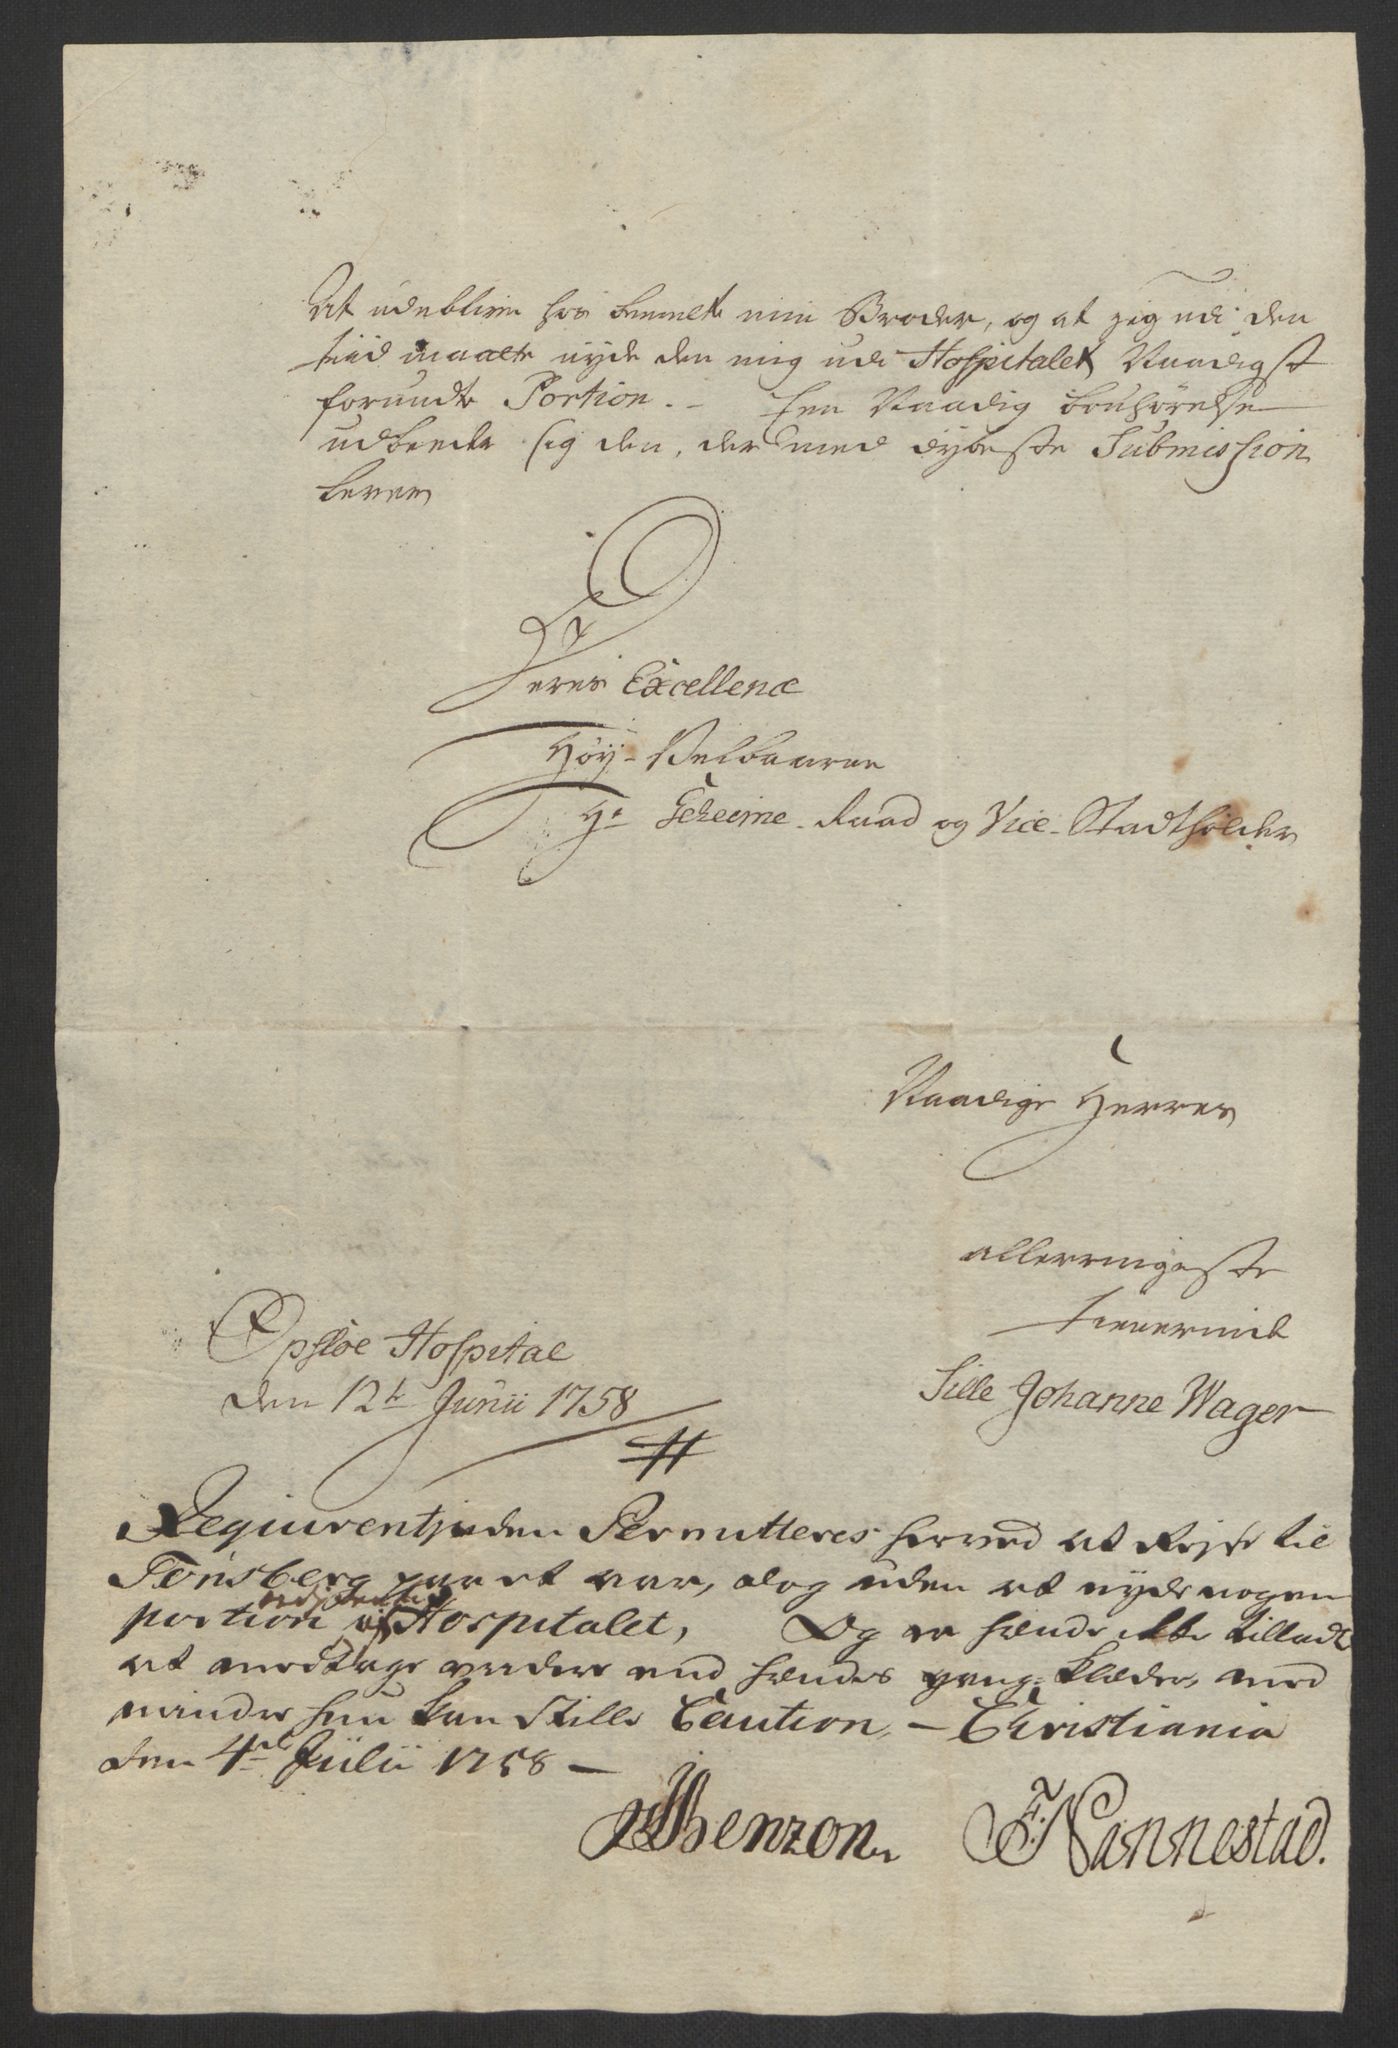 At udeblive hos bemelte min Broder, og at jeg udi den
tiid maatte nyde den mig udi Hospitalet Naadigst
forundte Portion. – Een Naadig bønhørelse
udbeeder sig den, der med dybeste Submission
lever
Deres Excellence
Høy-Velbaarne
Hr Geheime-Raad og Vice-Stadtholder
Naadige Herres
allerringeste
tienerinde
Sille Johanne Wager
Opsloe Hospital
den 12te Junii 1758
#
Reqvirentinden Permitteres herved at Rejse til
Tønsberg paa et aar, dog uden at nyde nogen
portion af Hospitalet, Og er hende ikke tilladt
at medtage videre end hendes gang-Klæder, med
mindre hun kan Stille Caution, – Christiania
den 4de Julii 1758 –
Benzon F: Nannestad.